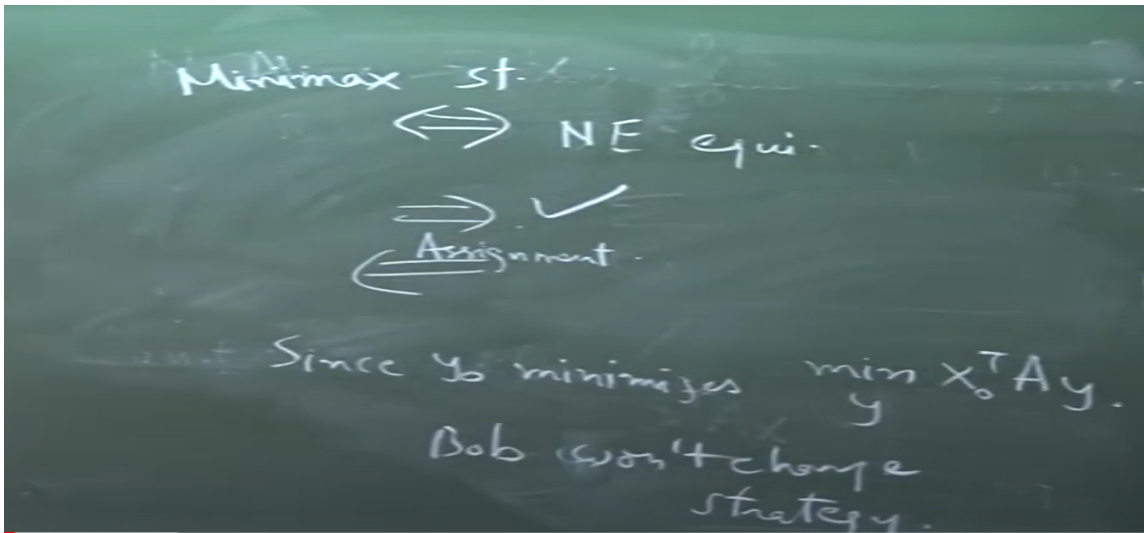 Minimax st.
⟺ NE equi.
⟹ ✓
Assignment.
⟸
Since y₀ minimizes min x₀ᵀAy.
y
Bob won't change
strategy.